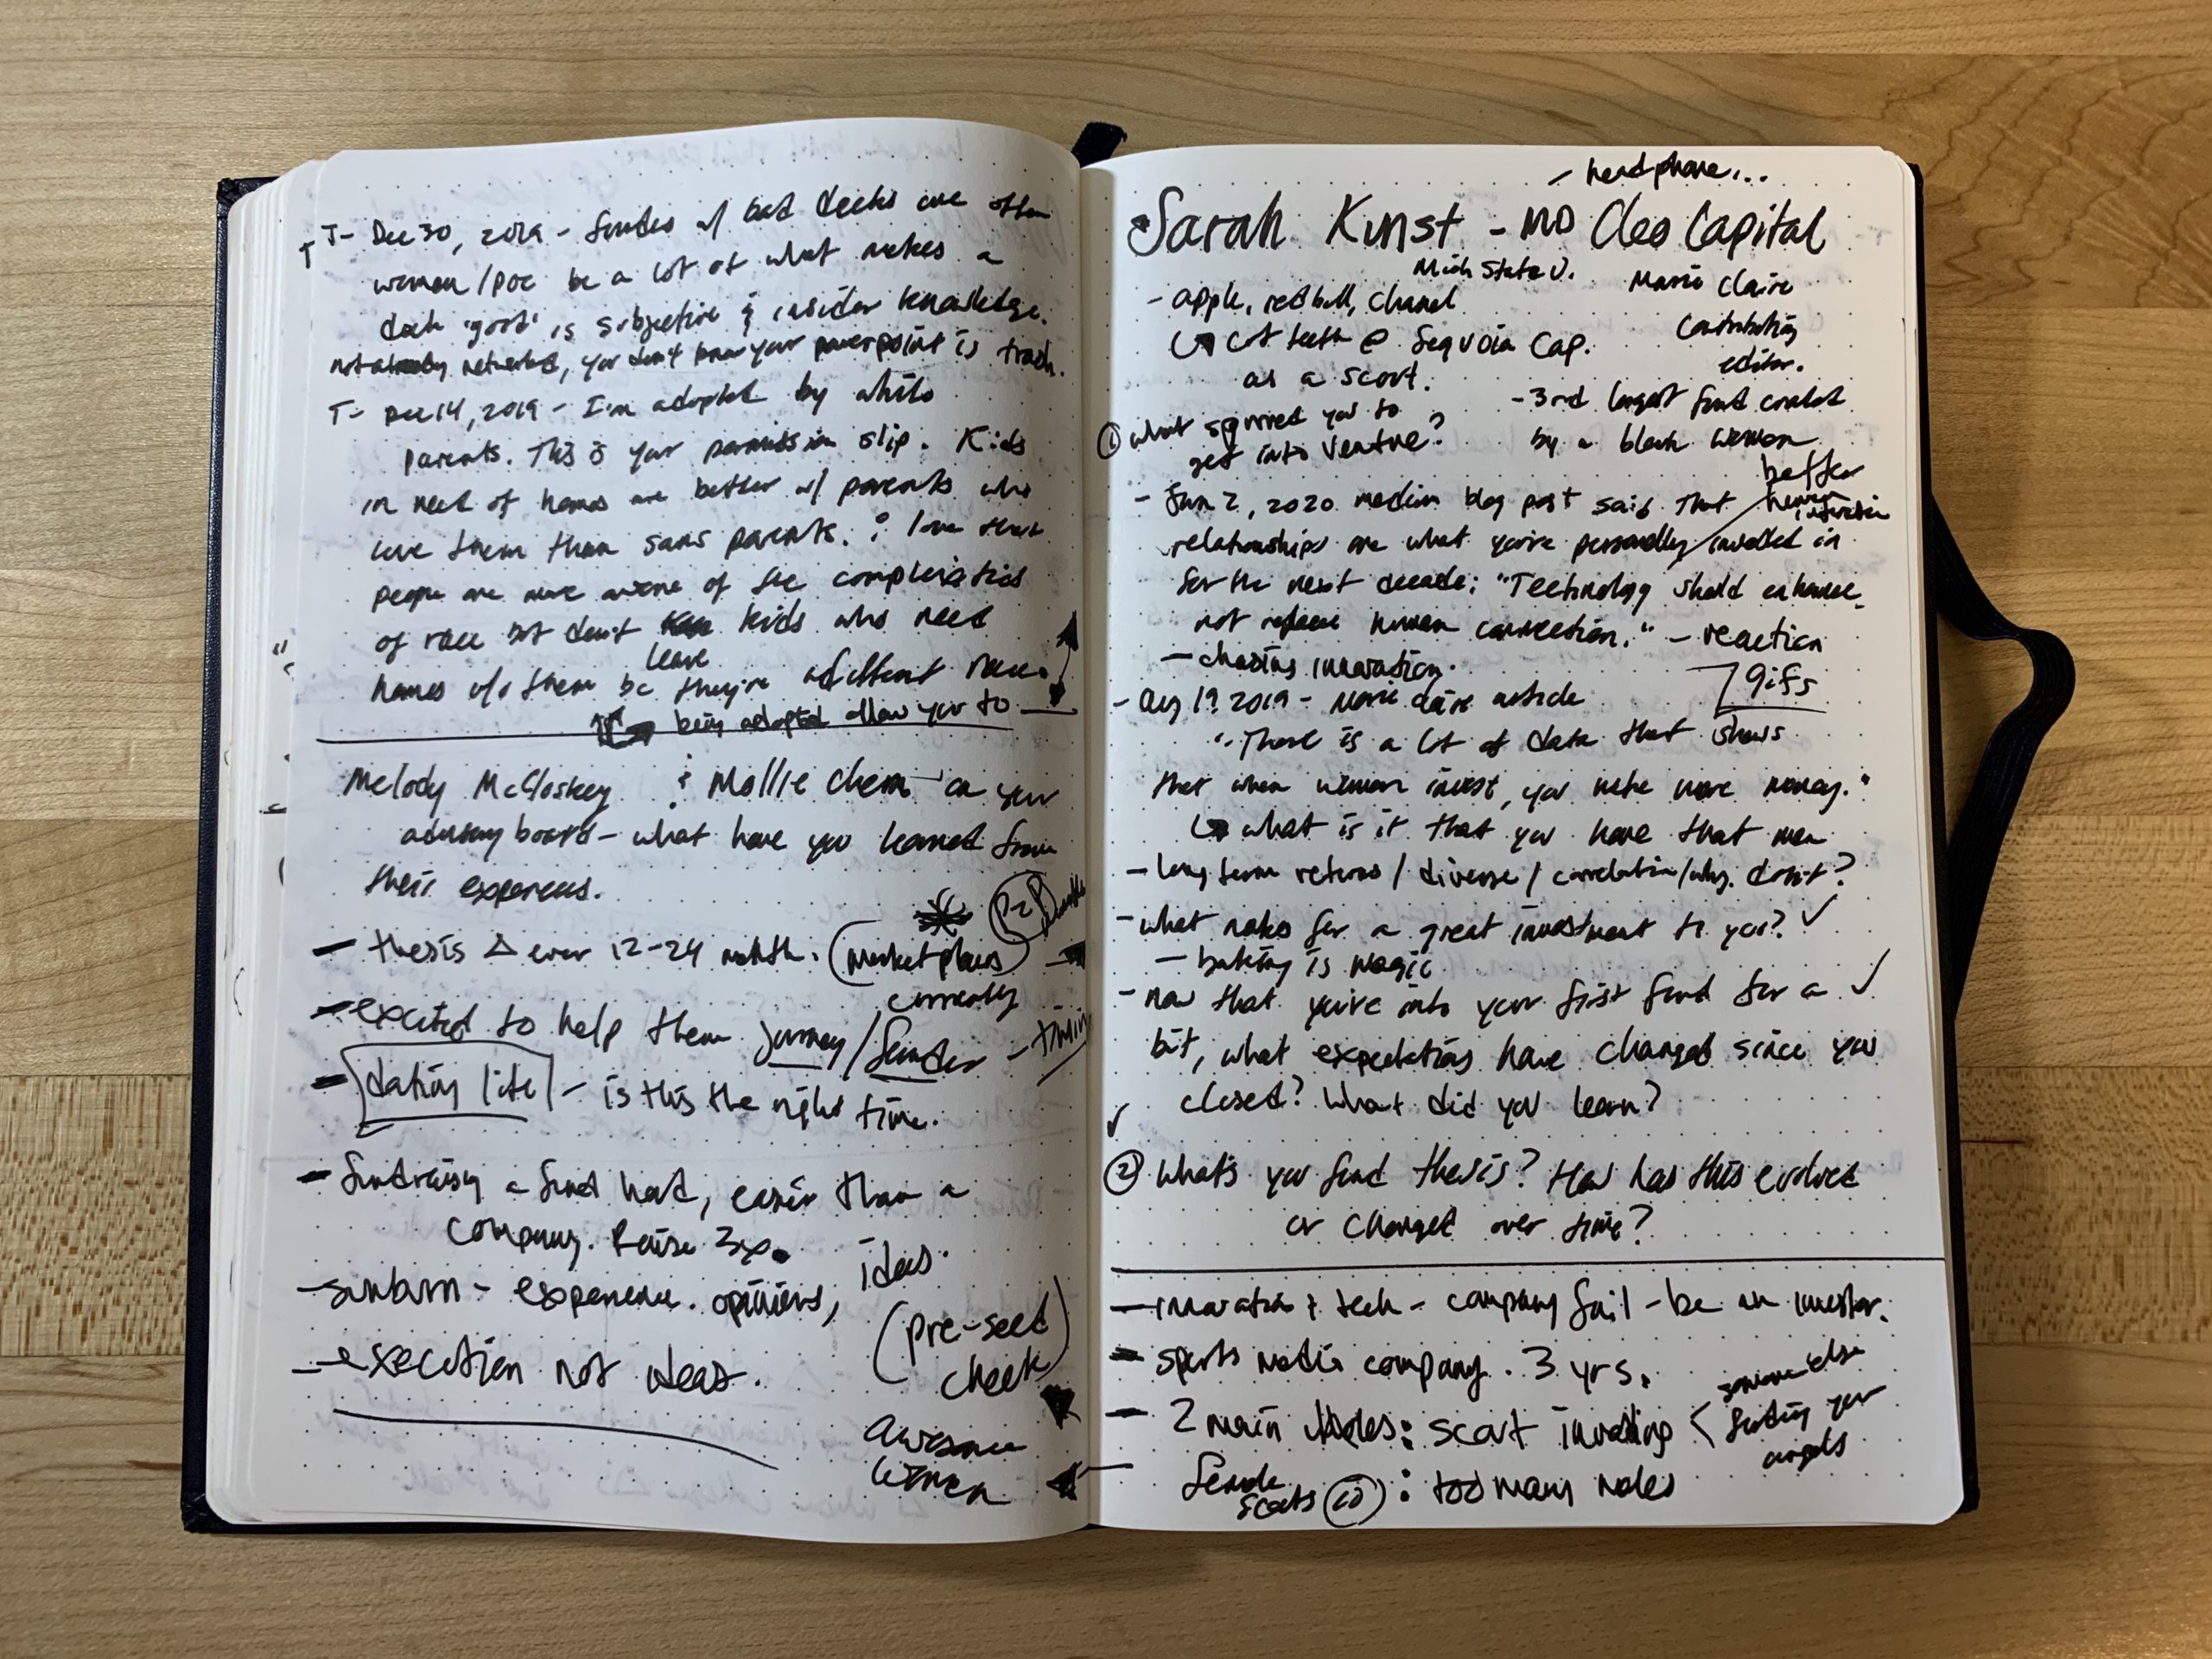 T- Dec 30, 2019 - w/ bad decks are often
women/POC bc a lot of what makes a
deck 'good' is subjective & insider knowledge.
not already networked, you don't know your powerpoint is trash.
T- Dec 14, 2019 - I'm adopted by white
parents. This is your permission slip. Kids
in need of homes are better w/ parents who
love them than sans parents. I love that
people are more aware of the complexities
of race but don't kids who need
leave
homes w/o them bc they're a different race.
being adopted allow you to
Melody McCloskey & Mollie on your
advisory board - what have you learned from
their experiences.
- thesis Δ ever 12-24 month. (marketplaces)
currently
- excited to help them journey/founder - timing
- dating life - is this the right time.
- fundraising a fund hard, easier than a
company. Raise 3x.
- experience. opinions, ideas.
- execution not ideas.
(pre-seed
check)
awesome
women
- headphone...
Sarah Kunst - MD Cleo Capital
Mich State U.
Marie Claire
contributing
editor.
- apple, redbull, chanel
↳ cut teeth @ Sequoia Cap.
as a scout.
- 3rd largest fund
by a black woman
① what spurred you to
get into Venture?
better
human
- Jun 2, 2020 medium blog post said that
relationships are what you're personally invested in
for the next decade: "Technology should enhance,
not replace human connection." - reaction
- chasing innovation.
7 gifs
- Aug 19 2019 - Marie Claire article
"There is a lot of data that shows
that when women invest, you make more money."
↳ what is it that you have that men
- long term returns / diverse / correlation/why. don't?
- what makes for a great investment to you? ✓
- is magic
- now that you're into your first fund for a ✓
bit, what expectations have changed since you
closed? What did you learn?
② What's your fund thesis? How has this evolved
or changed over time?
- innovation & tech - company fail - be an investor.
- sports media company. 3 yrs.
- 2 main : scout investing < someone else
your
angels
female
scouts : too many